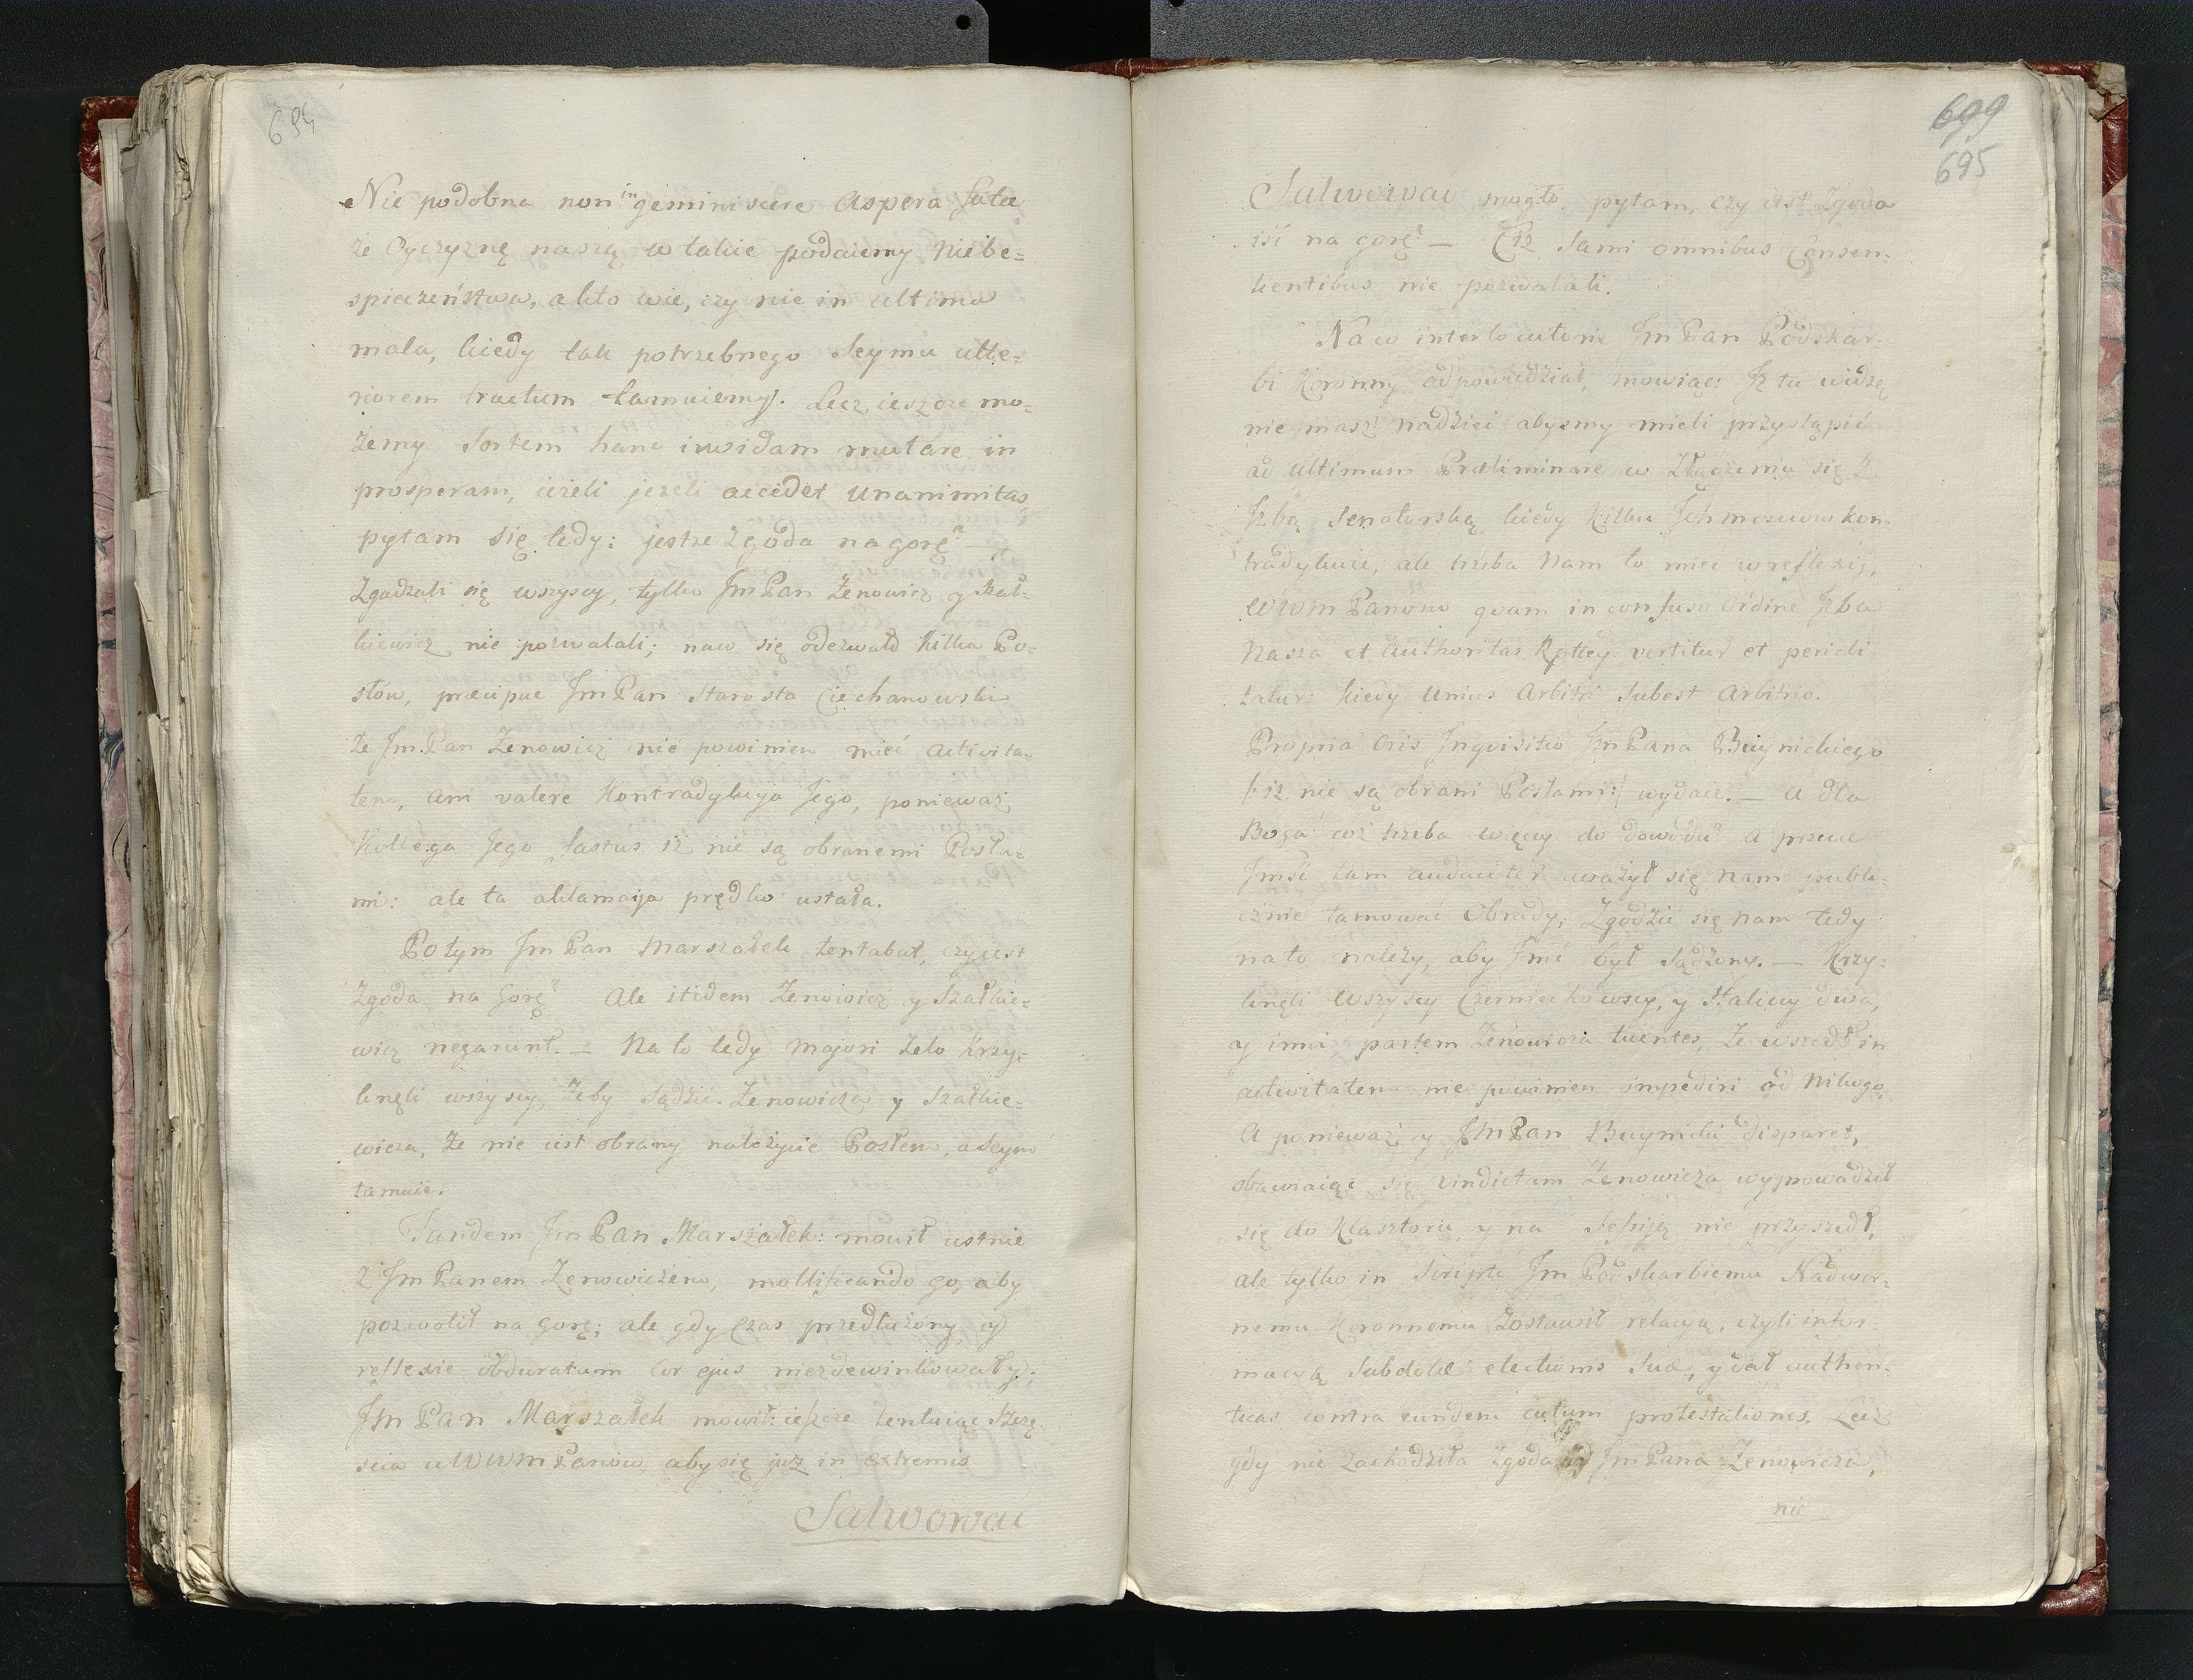 694
Nie podobna non ingeminiscere aspera fata
że Oyczyznę naszą w takie podaiemy niebe=
spieczeństwa, a kto wie, czy nie in ultima
mala, kiedy tak potrzebnego Seymu ulte=
riorem tractum tamuiemy. Lecz ieszcze mo=
żemy Sortem hanc invidam mutare in
prosperam, ieżeli jeżeli accidet unanimitas,
pytam się tedy: jestże zgoda na gorę? —
Zgadzali się wszyscy, tylko Jm Pan Zenowicz y Szał=
kiewicz nie pozwalali; naco się odezwało kilka Po=
słów, præcipue Jm Pan Starosta Ciechanowski
że Jm Pan Zenowicz nie powinien mieć activita=
tem, ani valere kontradykcya Jego, ponieważ
Kollega Jego fassus iż nie są obranemi Posła=
mi: ale ta akklamacya prędko ustała.
Potym Jm Pan Marszałek tentabat, czy iest
Zgoda na Gorę? Ale itidem Zenowicz y Szałkie=
wicz negarunt. — Na to tedy majori zelo krzy=
knęli wszyscy, żeby sądzić Zenowicza y Szałkie=
wicza, że nie iest obrany należycie Posłem, a Seym
tamuie.
Tandem Jm Pan Marszałek: mowił ustnie
z Jm Panem Zenowiczem, mollificando go, aby
pozwolił na Gorę; ale gdy czas przedłużony, y
reflexie obduratum Cor ejus niezdewinkowały;
Jm Pan Marszałek mowił: ieszcze tentuiąc szczę=
scia u WWM Panow, aby się już in extremis
Salwować
699
695
Salwować mogło, pytam, czy iest Zgoda
iść na gorę? — Ciż Sami omnibus Consen=
tientibus nie pozwalali.
Na co interlocutorie Jm Pan Podskar=
bi Koronny odpowiedział, mowiąc: Iż tu widzę
nie masz nadziei abysmy mieli przystąpić
ad ultimum Præliminare w Złączeniu się z
Izbą Senatorską, kiedy kilku Ichmosciow kon=
tradykuie, ale trzeba Nam to mieć w reflexij,
WWM Panowie quam in confuso Ordine Izba
Nasza et Authoritas Rpttey vertitur et pericli
tatur: kiedy Unius Arbitri subest Arbitrio.
Propria Oris Inquisitio Jm Pana Buynickiego
/: iż nie są obrani Posłami :/ wydaie. — A dla
Boga coż trzeba więcy do dowodu? a przecie
Jmść tam audaciter uważył się nam publi=
cznie tamować Obrady; Zgodzić się nam tedy
na to należy, aby Jmć był Sądzony. — Krzy=
knęli wszyscy Czerniechowscy, y Haliccy dwa,
y inni, partem Zenowicza tuentes, że wszedł in
activitatem nie powinien impediri od Nikogo,
A ponieważ y Jm Pan Buynicki disparet,
obawiaiąc się vindictam Zenowicza wyprowadził
się do Klasztoru y na Sessyję nie przyszedł,
ale tylko in Scripto Jm Podskarbiemu Nadwor=
nemu Koronnemu zostawił relacyą, czyli infor=
macyą Subdolæ electionis Suæ, y dał authen=
ticas contra eundem actum protestationes. Lecz
gdy nie zachodziła zgoda od Jm Pana Zenowicza,
nie